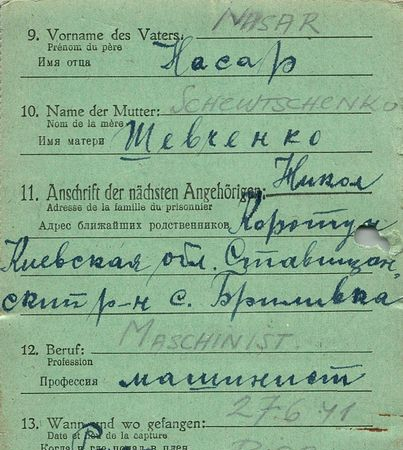 NASAR
9. Vorname des Vaters:
Prénom du père
Имя отца Насар
SCHEWTSCHENKO
10. Name der Mutter:
Nom de la mère
Имя матери Шевченко
11. Anschrift der nächsten Angehörigen: Никол
Adresse de la famille du prisonnier
Адрес ближайших родственников Коротун
Киевская обл. Ставищан-
ский р-н с. Бриливка
MASCHINIST.
12. Beruf:
Profession
Профессия машинист
27.6.41
13. Wann und wo gefangen:
Date et lieu de la capture
Когда и где попал в плен